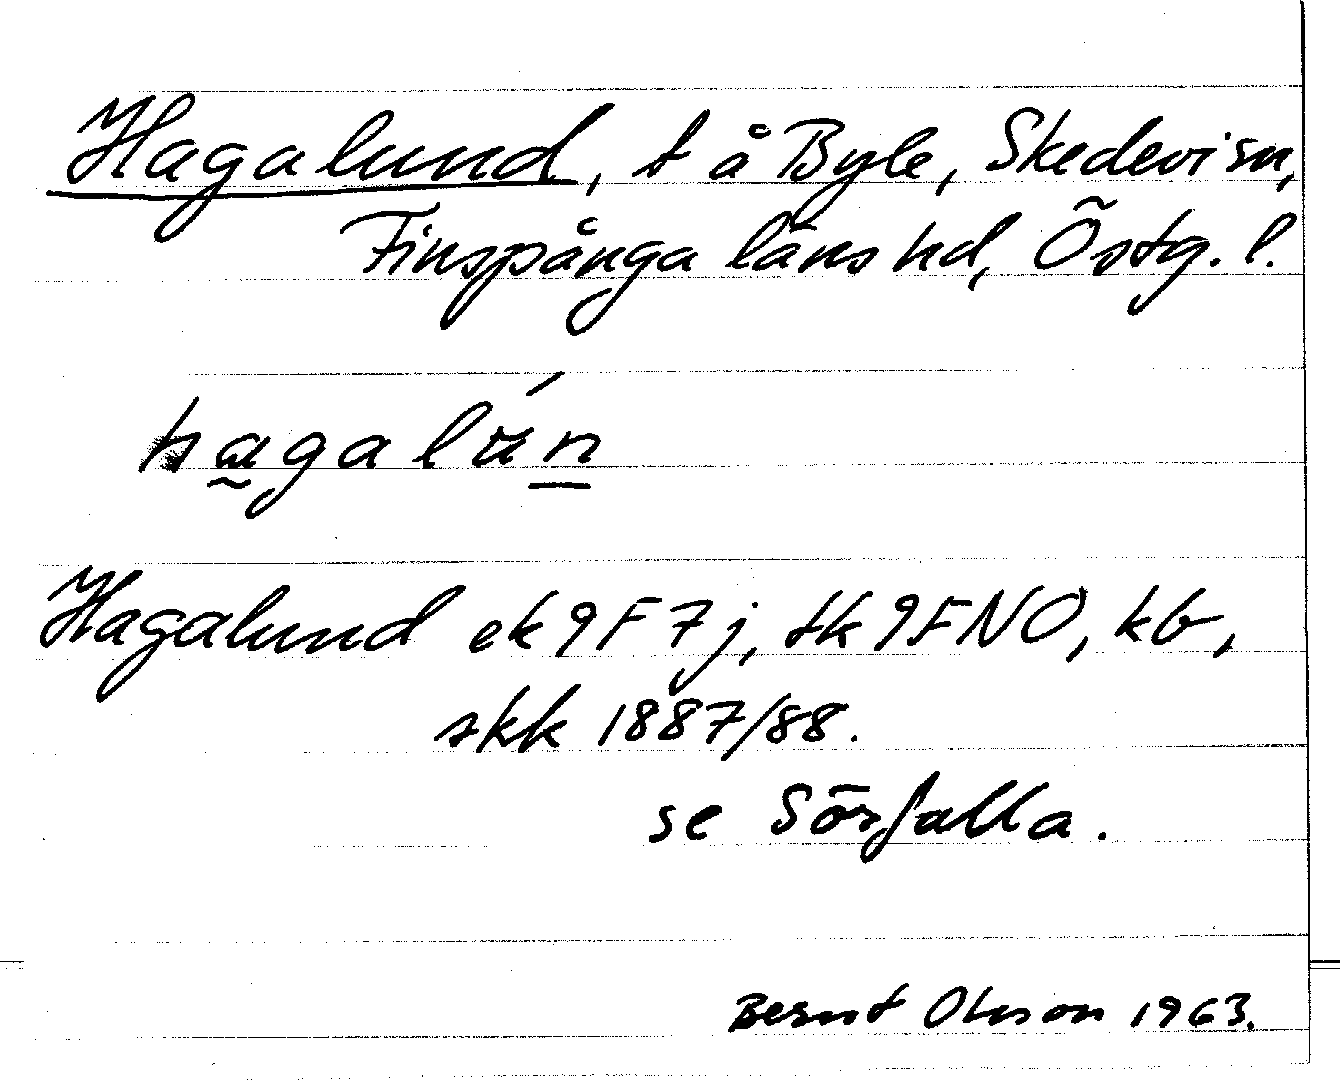 Hagalund, t å Byle, Skedevi sn,
Finspånga läns hd, Östg. l.
hagalún
Hagalund ek 9F 7j, tk 9FNO, kb,
skk 1887/88.
se Sörfalla.
Bernt Olsson 1963.